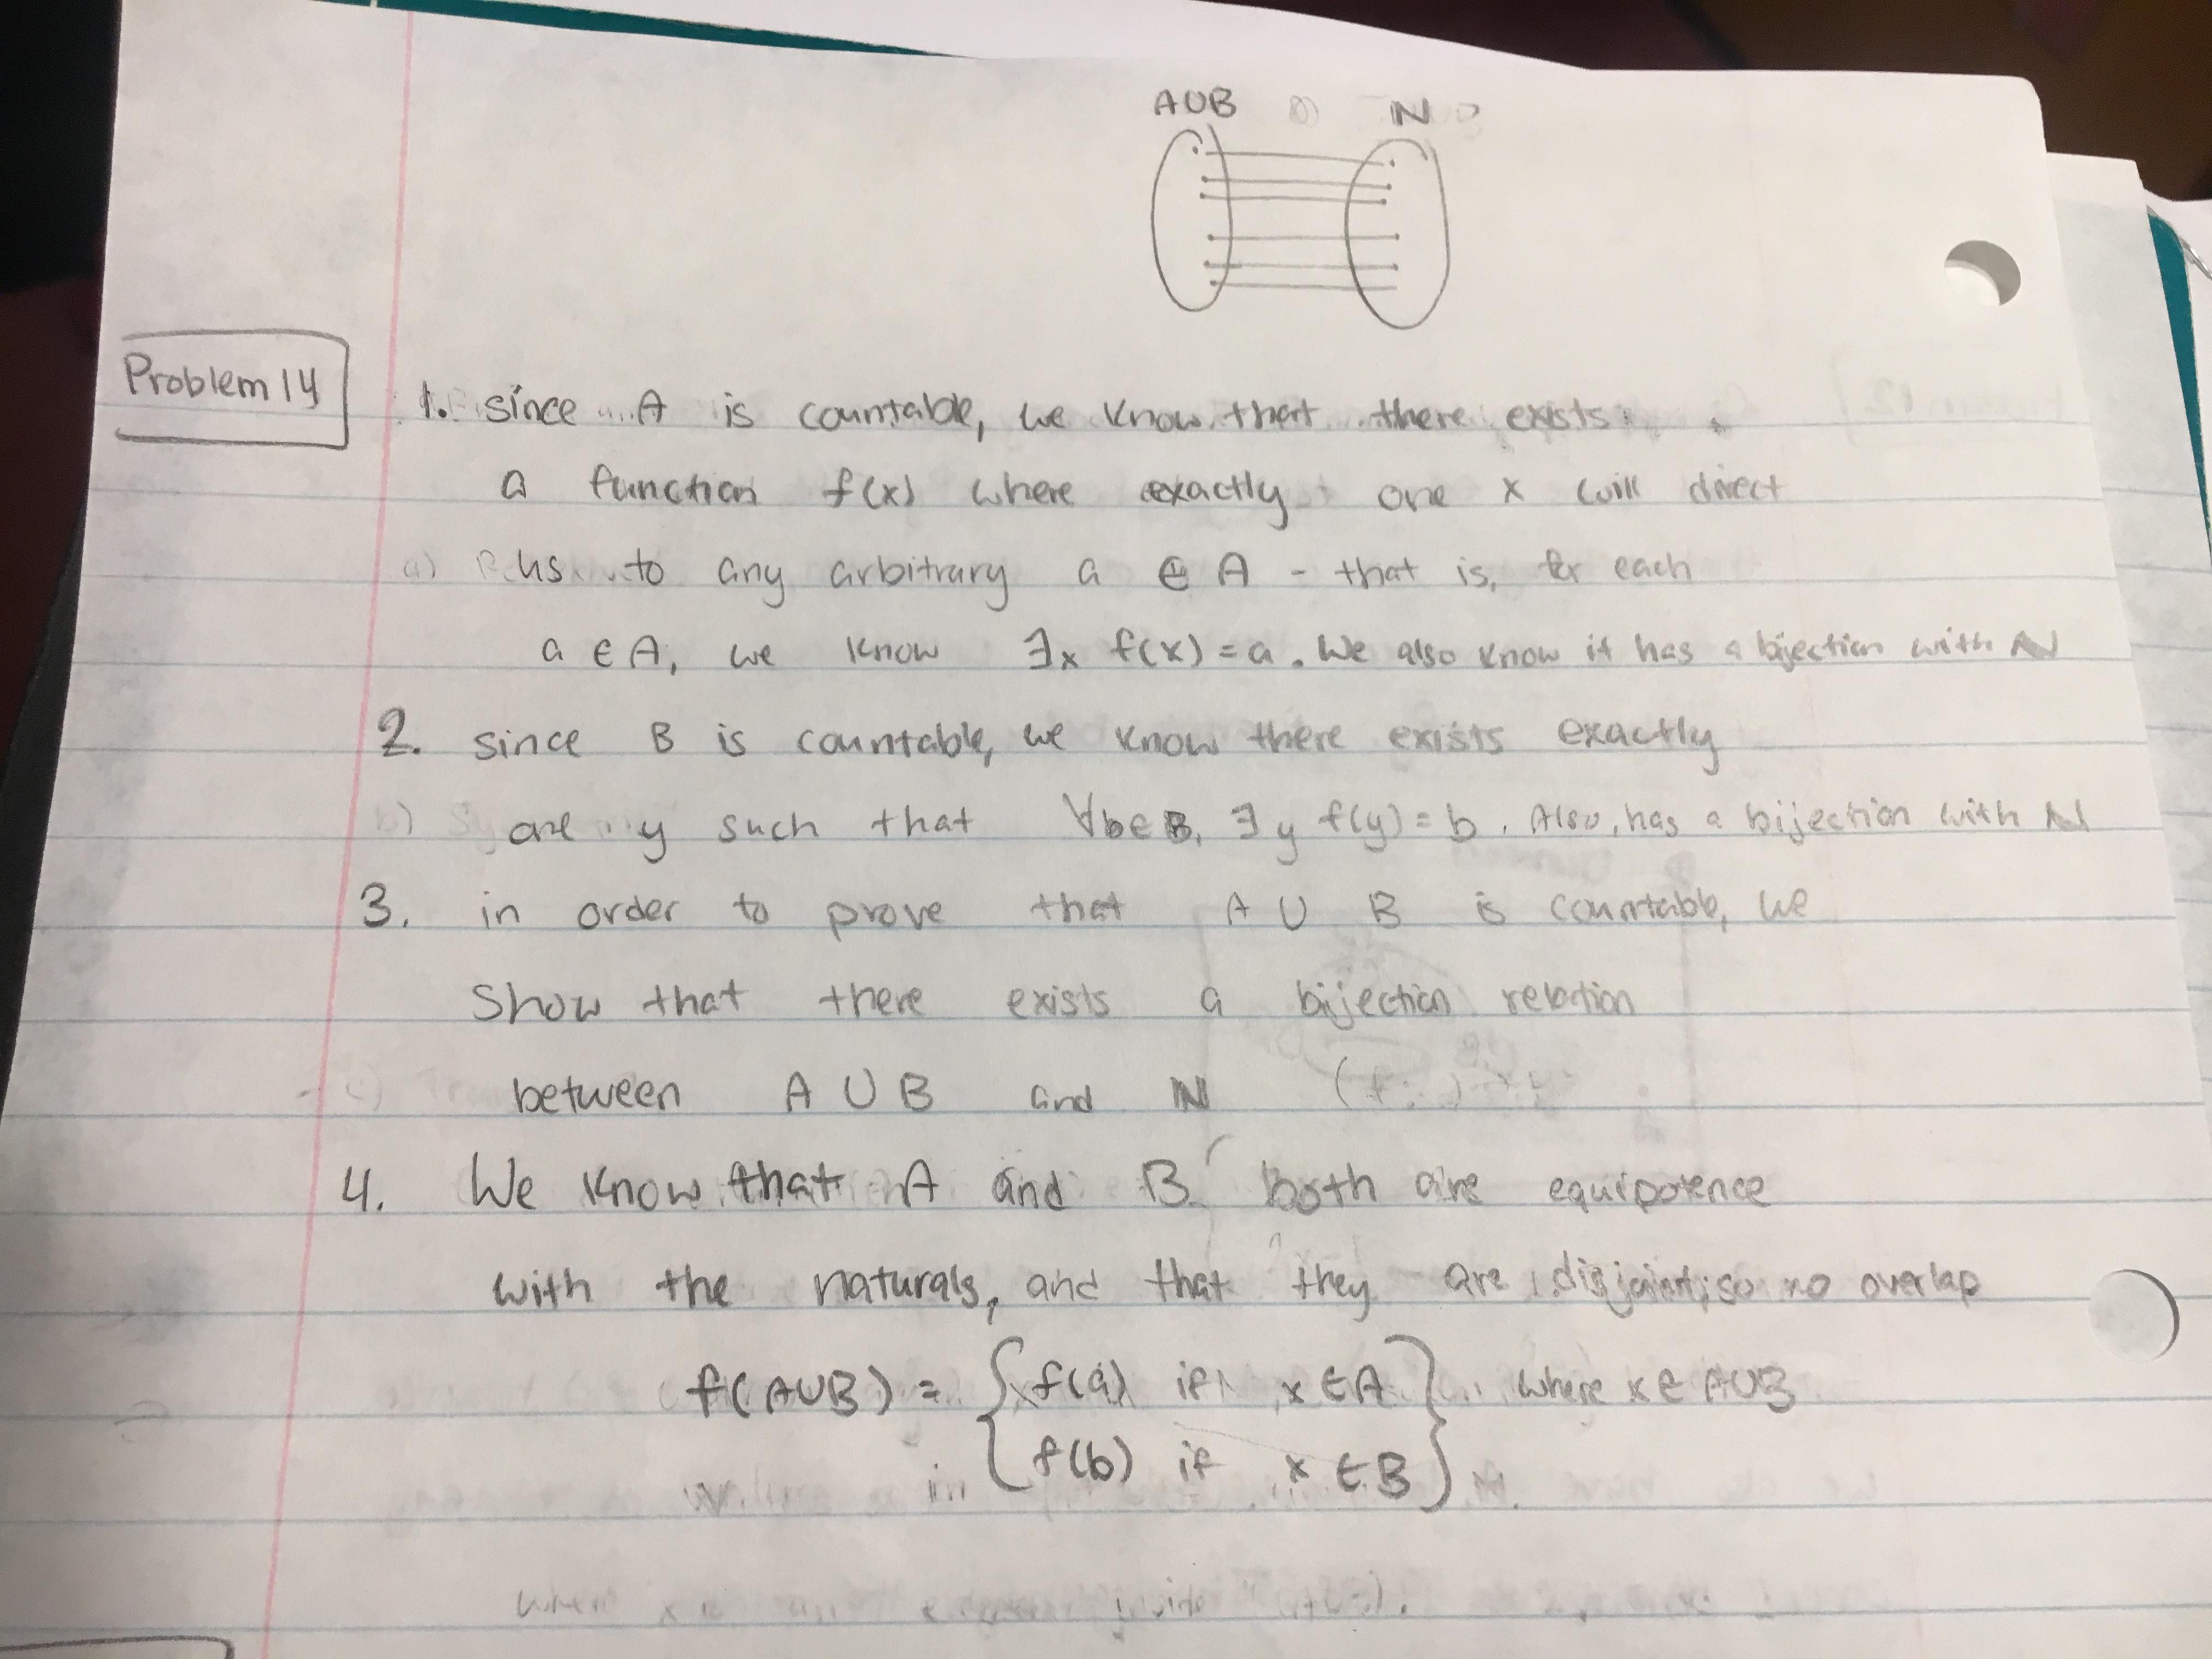 AUB N
Problem 14
1. since A is countable, we know that there exists
a function f(x) where exactly one x will direct
us to any arbitrary a ∈ A - that is, for each
a ∈ A, we know ∃x f(x) = a. We also know it has a bijection with N
2. since B is countable, we know there exists exactly
one y such that ∀b∈B, ∃y f(y) = b. Also, has a bijection with N
3. in order to prove that A U B is countable, we
show that there exists a bijection relation
between A U B and N
4. We know that A and B both are equipotence
with the naturals, and that they are disjoint, so no overlap
f(AUB) = { f(a) if x ∈ A } where x ∈ AUB
f(b) if x ∈ B